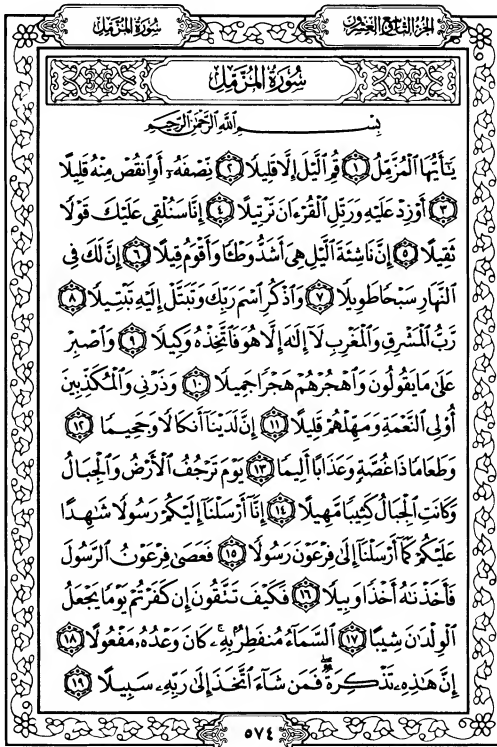 سُورَةُ المُزَّمِّلِ
الجُزءُ التَّاسِعُ وَالعِشرُونَ
سُورَةُ المُزَّمِّلِ
بِسْمِ ٱللَّهِ ٱلرَّحْمَٰنِ ٱلرَّحِيمِ
يَٰٓأَيُّهَا ٱلْمُزَّمِّلُ ١ قُمِ ٱلَّيْلَ إِلَّا قَلِيلًا ٢ نِّصْفَهُۥٓ أَوِ ٱنقُصْ مِنْهُ قَلِيلًا
٣ أَوْ زِدْ عَلَيْهِ وَرَتِّلِ ٱلْقُرْءَانَ تَرْتِيلًا ٤ إِنَّا سَنُلْقِى عَلَيْكَ قَوْلًا
ثَقِيلًا ٥ إِنَّ نَاشِئَةَ ٱلَّيْلِ هِىَ أَشَدُّ وَطْـًٔا وَأَقْوَمُ قِيلًا ٦ إِنَّ لَكَ فِى
ٱلنَّهَارِ سَبْحًا طَوِيلًا ٧ وَٱذْكُرِ ٱسْمَ رَبِّكَ وَتَبَتَّلْ إِلَيْهِ تَبْتِيلًا ٨
رَّبُّ ٱلْمَشْرِقِ وَٱلْمَغْرِبِ لَآ إِلَٰهَ إِلَّا هُوَ فَٱتَّخِذْهُ وَكِيلًا ٩ وَٱصْبِرْ
عَلَىٰ مَا يَقُولُونَ وَٱهْجُرْهُمْ هَجْرًا جَمِيلًا ١٠ وَذَرْنِى وَٱلْمُكَذِّبِينَ
أُو۟لِى ٱلنَّعْمَةِ وَمَهِّلْهُمْ قَلِيلًا ١١ إِنَّ لَدَيْنَآ أَنكَالًا وَجَحِيمًا ١٢
وَطَعَامًا ذَا غُصَّةٍ وَعَذَابًا أَلِيمًا ١٣ يَوْمَ تَرْجُفُ ٱلْأَرْضُ وَٱلْجِبَالُ
وَكَانَتِ ٱلْجِبَالُ كَثِيبًا مَّهِيلًا ١٤ إِنَّآ أَرْسَلْنَآ إِلَيْكُمْ رَسُولًا شَٰهِدًا
عَلَيْكُمْ كَمَآ أَرْسَلْنَآ إِلَىٰ فِرْعَوْنَ رَسُولًا ١٥ فَعَصَىٰ فِرْعَوْنُ ٱلرَّسُولَ
فَأَخَذْنَٰهُ أَخْذًا وَبِيلًا ١٦ فَكَيْفَ تَتَّقُونَ إِن كَفَرْتُمْ يَوْمًا يَجْعَلُ
ٱلْوِلْدَٰنَ شِيبًا ١٧ ٱلسَّمَآءُ مُنفَطِرٌۢ بِهِۦ ۚ كَانَ وَعْدُهُۥ مَفْعُولًا ١٨
إِنَّ هَٰذِهِۦ تَذْكِرَةٌ ۖ فَمَن شَآءَ ٱتَّخَذَ إِلَىٰ رَبِّهِۦ سَبِيلًا ١٩
٥٧٤